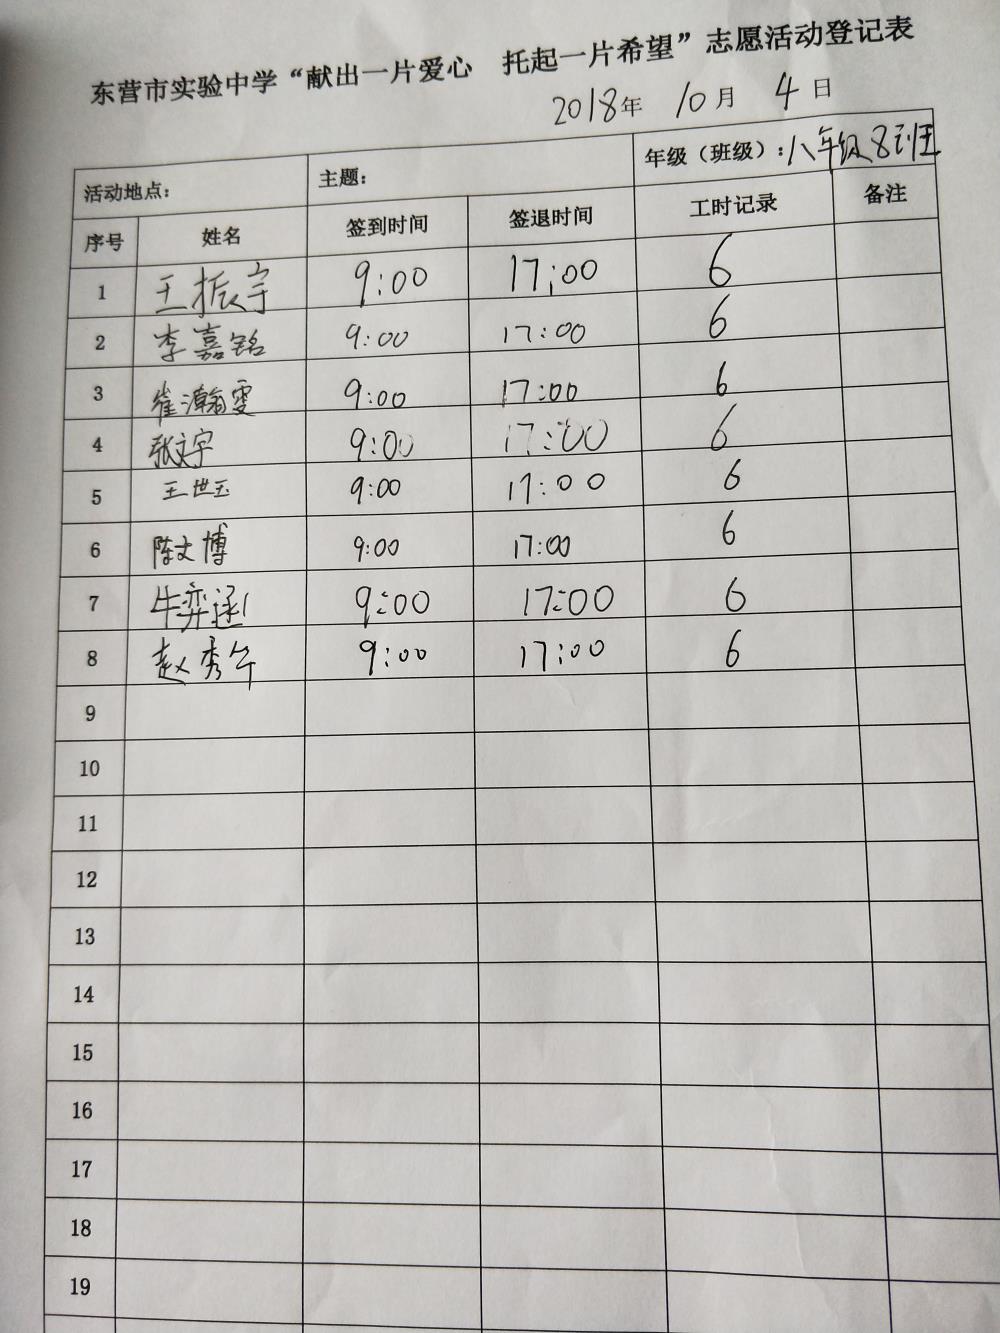 东营市实验中学“献出一片爱心 托起一片希望”志愿活动登记表
2018年 10月 4日
活动地点: 主题: 年级（班级）:八年级8班
序号 姓名 签到时间 签退时间 工时记录 备注
1 王振宇 9:00 17:00 6
2 李嘉铭 9:00 17:00 6
3 崔瀚雯 9:00 17:00 6
4 张文宇 9:00 17:00 6
5 王世玉 9:00 17:00 6
6 陈文博 9:00 17:00 6
7 牛弈涵 9:00 17:00 6
8 赵秀 9:00 17:00 6
9
10
11
12
13
14
15
16
17
18
19